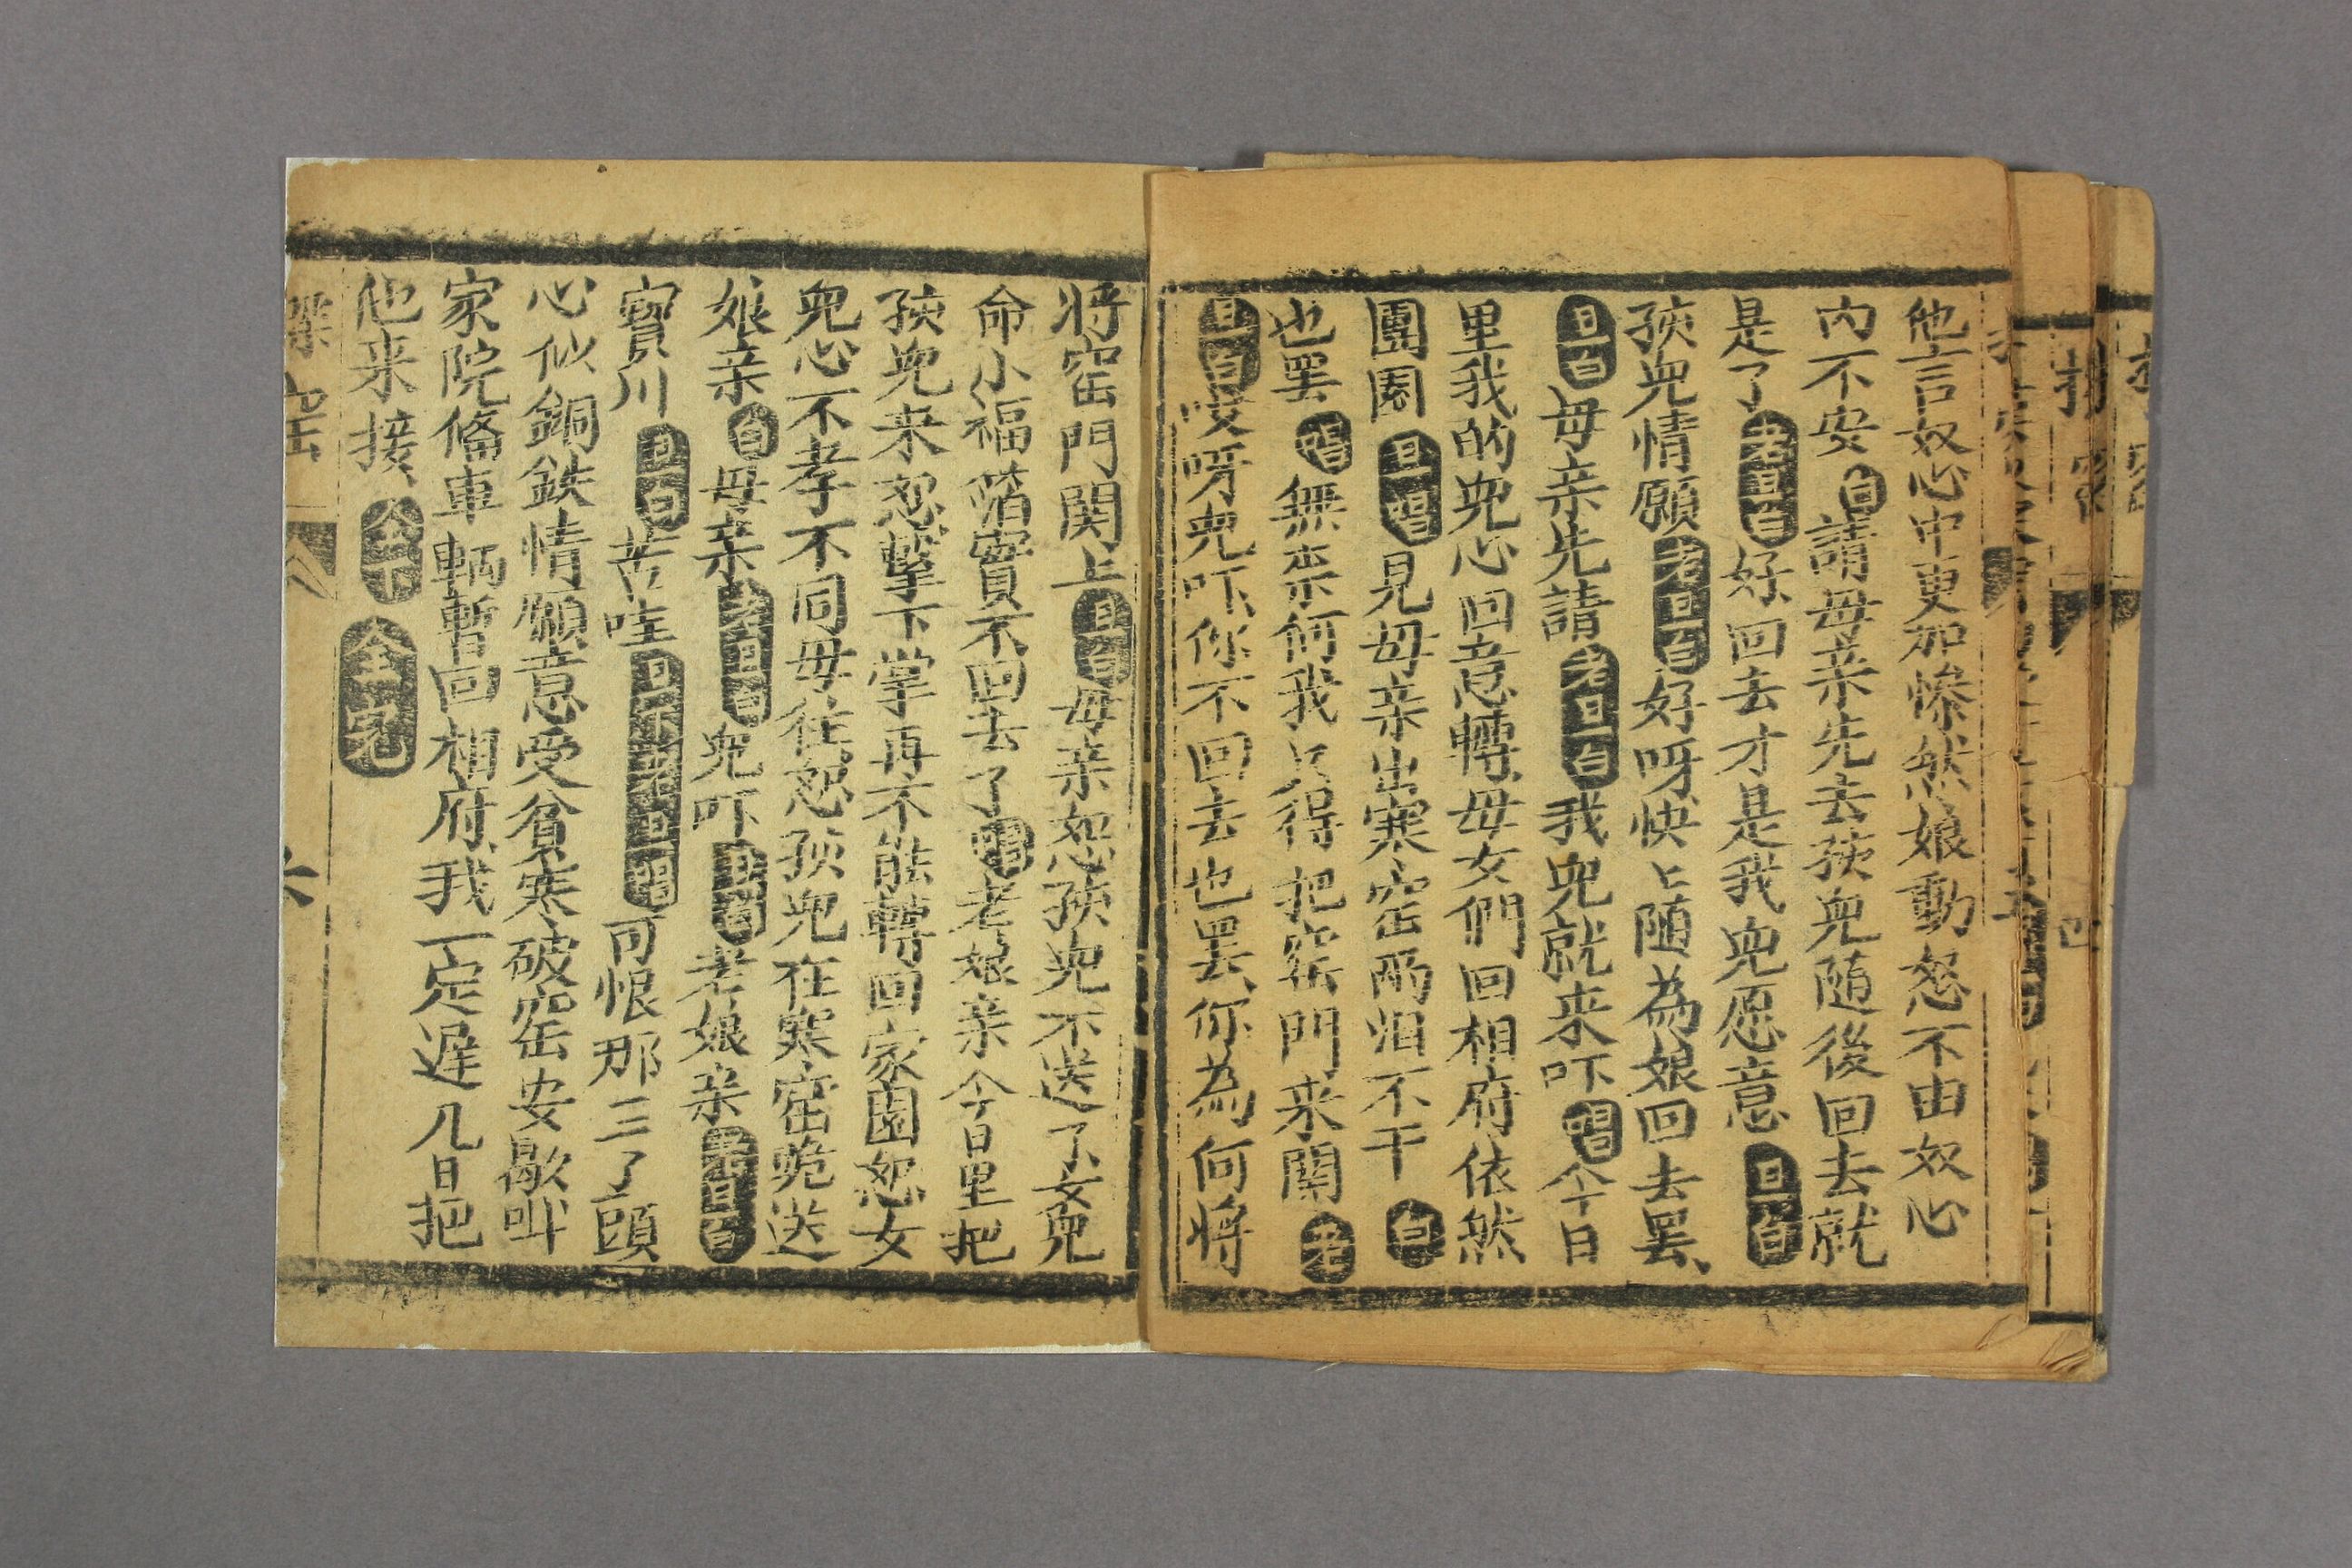 他言奴心中更加慘然娘動怒不由奴心
内不安白請母亲先去孩兒随後回去就
是了老旦白好回去才是我兒愿意旦白
孩兒情願老旦白好呀快上随為娘回去罢
旦白母亲先請老旦白我兒就来吓唱今日
里我的兒心回意轉母女們回相府依然
團圓旦唱見母亲出寒窑兩泪不干白
也罢唱無柰何我只得把窑門来関老
旦白哎呀兒吓你不回去也罢你為何將
將窑門関上旦白母亲恕孩兒不送了女兒
命小福薄實不回去了唱老娘亲今日里把
孩兒来恕撃下掌再不能轉回家園恕女
兒心不孝不同母往恕孩兒在寒窑跪送
娘亲白母亲老旦白兒吓旦唱老娘亲老旦白
寳川旦白苦哇旦下老旦唱可恨那三了頭
心似銅鉄情願意受貧寒破窑安歇叫
家院俻車輌暫回相府我一定遲几日把
他来接仝下 全完
窑 六